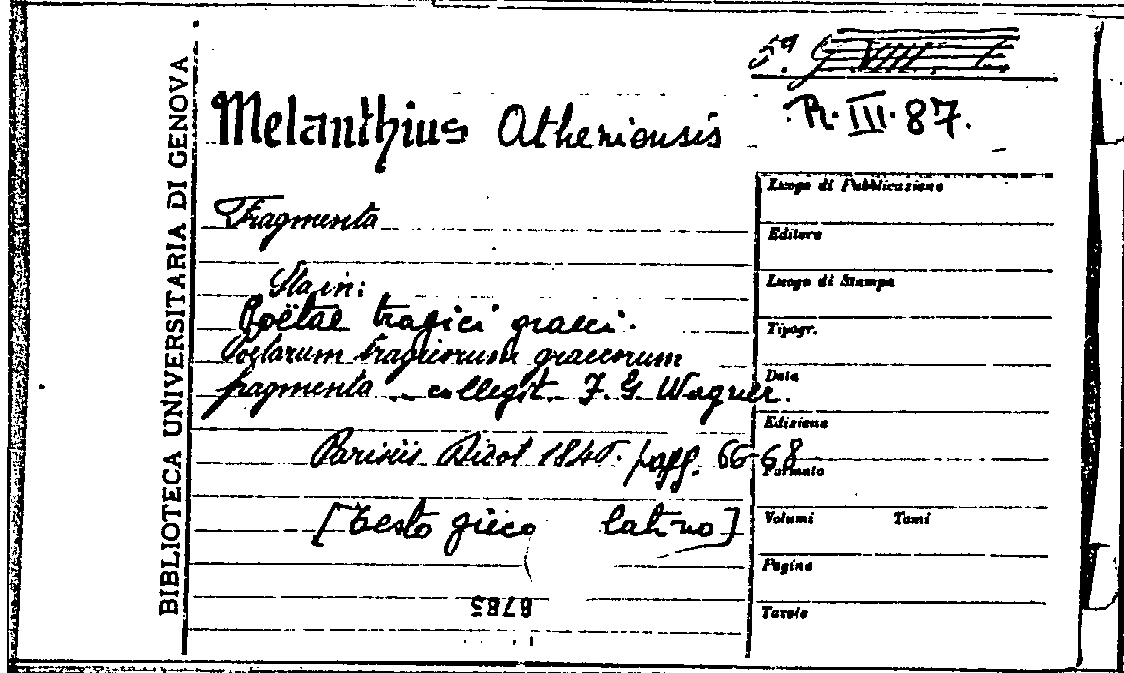 5ª G VIII.
R. III. 87.
Melanthius Atheniensis
Fragmenta
Sta in:
Poëtae tragici graeci.
Poetarum tragicorum graecorum
fragmenta .. collegit F. G. Wagner.
Parisiis Didot 1846. pagg. 66-68
[Testo greco latino]
8785
BIBLIOTECA UNIVERSITARIA DI GENOVA
Luogo di Pubblicazione
Editore
Luogo di Stampa
Tipogr.
Data
Edizione
Formato
Volumi Tomi
Pagine
Tavole